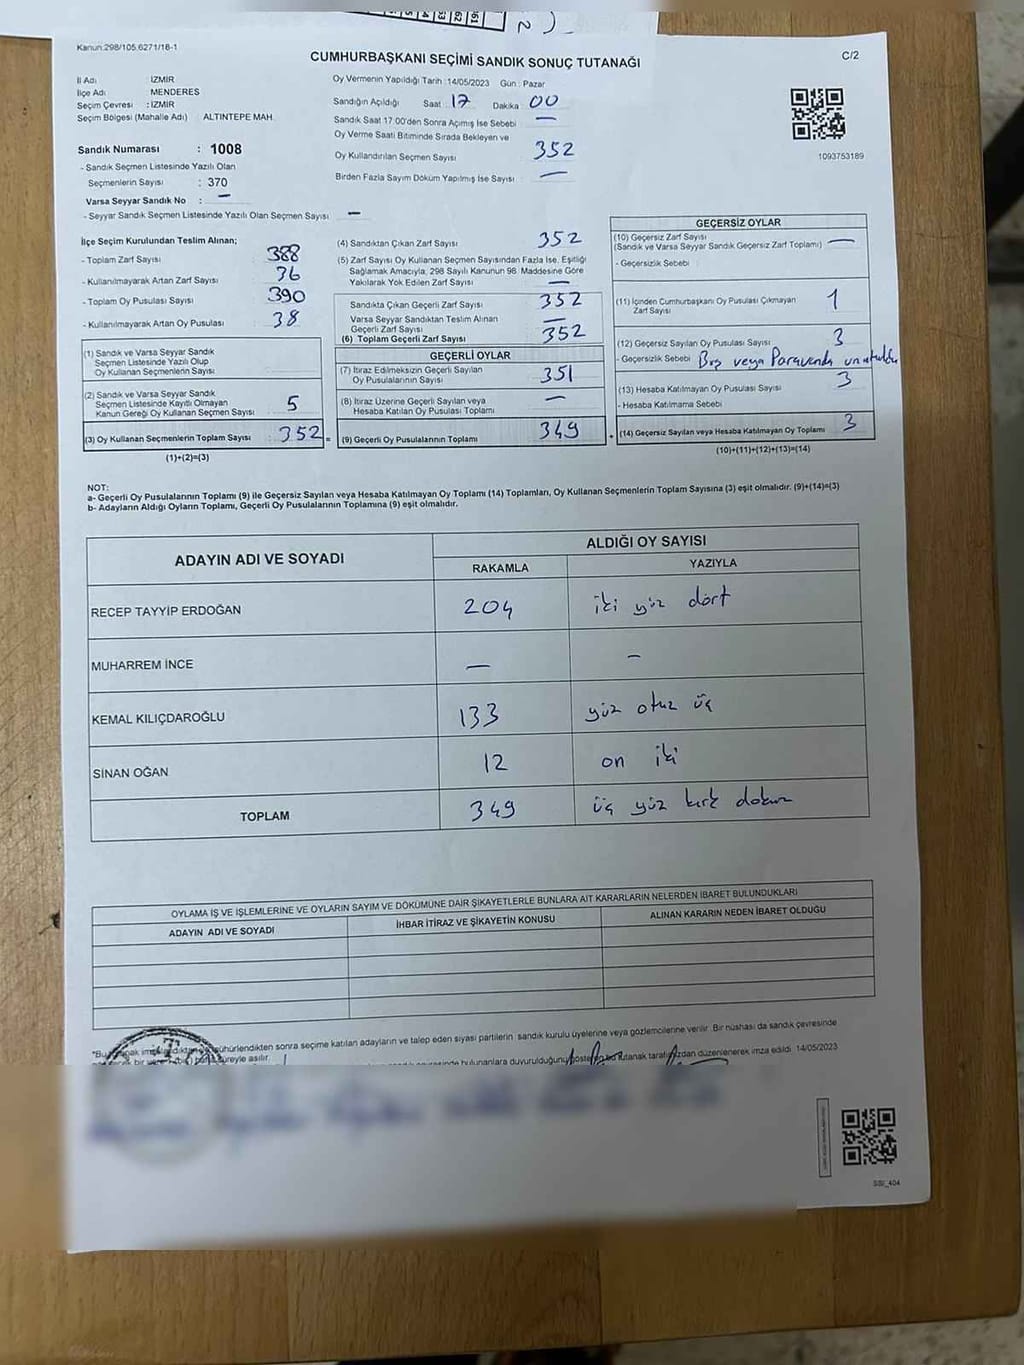 Kanun:298/105.6271/18-1
CUMHURBAŞKANI SEÇİMİ SANDIK SONUÇ TUTANAĞI
C/2
İl Adı : İZMİR
İlçe Adı MENDERES
Seçim Çevresi : İZMİR
Seçim Bölgesi (Mahalle Adı) ALTINTEPE MAH.
Sandık Numarası : 1008
- Sandık Seçmen Listesinde Yazılı Olan
Seçmenlerin Sayısı : 370
Varsa Seyyar Sandık No : —
- Seyyar Sandık Seçmen Listesinde Yazılı Olan Seçmen Sayısı —
Oy Vermenin Yapıldığı Tarih : 14/05/2023 Gün : Pazar
Sandığın Açıldığı Saat : 17 Dakika : 00
Sandık Saat 17.00'den Sonra Açımış İse Sebebi —
Oy Verme Saati Bitiminde Sırada Bekleyen ve
Oy Kullandırılan Seçmen Sayısı 352
Birden Fazla Sayım Döküm Yapılmış İse Sayısı —
1093753189
İlçe Seçim Kurulundan Teslim Alınan;
- Toplam Zarf Sayısı 388
- Kullanılmayarak Artan Zarf Sayısı 36
- Toplam Oy Pusulası Sayısı 390
- Kullanılmayarak Artan Oy Pusulası 38
(1) Sandık ve Varsa Seyyar Sandık
Seçmen Listesinde Yazılı Olup
Oy Kullanan Seçmenlerin Sayısı
(2) Sandık ve Varsa Seyyar Sandık
Seçmen Listesinde Kayıtlı Olmayan
Kanun Gereği Oy Kullanan Seçmen Sayısı 5
(3) Oy Kullanan Seçmenlerin Toplam Sayısı : 352 =
(1)+(2)=(3)
(4) Sandıktan Çıkan Zarf Sayısı 352
(5) Zarf Sayısı Oy Kullanan Seçmen Sayısından Fazla İse, Eşitliği
Sağlamak Amacıyla, 298 Sayılı Kanunun 98. Maddesine Göre
Yakılarak Yok Edilen Zarf Sayısı —
Sandıkta Çıkan Geçerli Zarf Sayısı 352
Varsa Seyyar Sandıktan Teslim Alınan
Geçerli Zarf Sayısı —
(6) Toplam Geçerli Zarf Sayısı 352
GEÇERLİ OYLAR
(7) İtiraz Edilmeksizin Geçerli Sayılan
Oy Pusulalarının Sayısı 351
(8) İtiraz Üzerine Geçerli Sayılan veya
Hesaba Katılan Oy Pusulası Toplamı —
(9) Geçerli Oy Pusulalarının Toplamı 349 +
GEÇERSİZ OYLAR
(10) Geçersiz Zarf Sayısı
(Sandık ve Varsa Seyyar Sandık Geçersiz Zarf Toplamı) —
- Geçersizlik Sebebi
(11) İçinden Cumhurbaşkanı Oy Pusulası Çıkmayan
Zarf Sayısı 1
(12) Geçersiz Sayılan Oy Pusulası Sayısı 3
- Geçersizlik Sebebi Boş veya Paravanda unutuldu
(13) Hesaba Katılmayan Oy Pusulası Sayısı 3
- Hesaba Katılmama Sebebi
(14) Geçersiz Sayılan veya Hesaba Katılmayan Oy Toplamı 3
(10)+(11)+(12)+(13)=(14)
NOT:
a- Geçerli Oy Pusulalarının Toplamı (9) ile Geçersiz Sayılan veya Hesaba Katılmayan Oy Toplamı (14) Toplamları, Oy Kullanan Seçmenlerin Toplam Sayısına (3) eşit olmalıdır. (9)+(14)=(3)
b- Adayların Aldığı Oyların Toplamı, Geçerli Oy Pusulalarının Toplamına (9) eşit olmalıdır.
ADAYIN ADI VE SOYADI
ALDIĞI OY SAYISI
RAKAMLA YAZIYLA
RECEP TAYYİP ERDOĞAN 204 iki yüz dört
MUHARREM İNCE — —
KEMAL KILIÇDAROĞLU 133 yüz otuz üç
SİNAN OĞAN 12 on iki
TOPLAM 349 üç yüz kırk dokuz
OYLAMA İŞ VE İŞLEMLERİNE VE OYLARIN SAYIM VE DÖKÜMÜNE DAİR ŞİKAYETLERLE BUNLARA AİT KARARLARIN NELERDEN İBARET BULUNDUKLARI
ADAYIN ADI VE SOYADI İHBAR İTİRAZ VE ŞİKAYETİN KONUSU ALINAN KARARIN NEDEN İBARET OLDUĞU
sonra seçime katılan adayların ve talep eden siyasi partilerin sandık kurulu üyelerine veya gözlemcilerine verilir. Bir nüshası da sandık çevresinde
asılır.
bulunanlara duyurulduğunu gösteren bu tutanak tarafımızdan düzenlenerek imza edildi. 14/05/2023
SSI_404